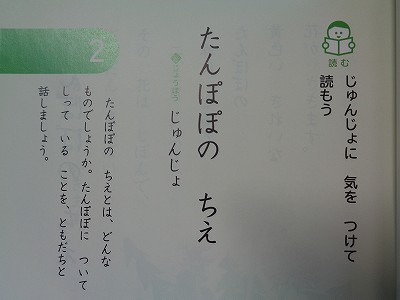 読む
じゅんじょに 気を つけて
読もう
たんぽぽの ちえ
じょうほう
じゅんじょ
2
たんぽぽの ちえとは、どんな
ものでしょうか。たんぽぽに ついて
しって いる ことを、ともだちと
話しましょう。